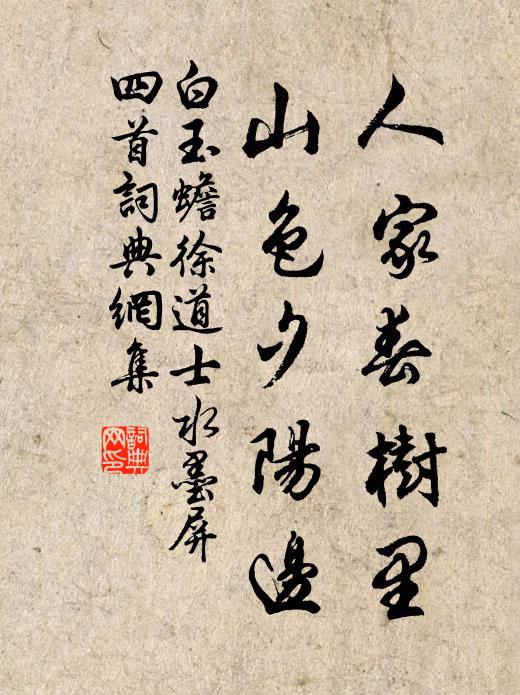 人家春樹里
山色夕陽邊
白玉蟾徐道士水墨屏
四首詞典網集
詞典
网印